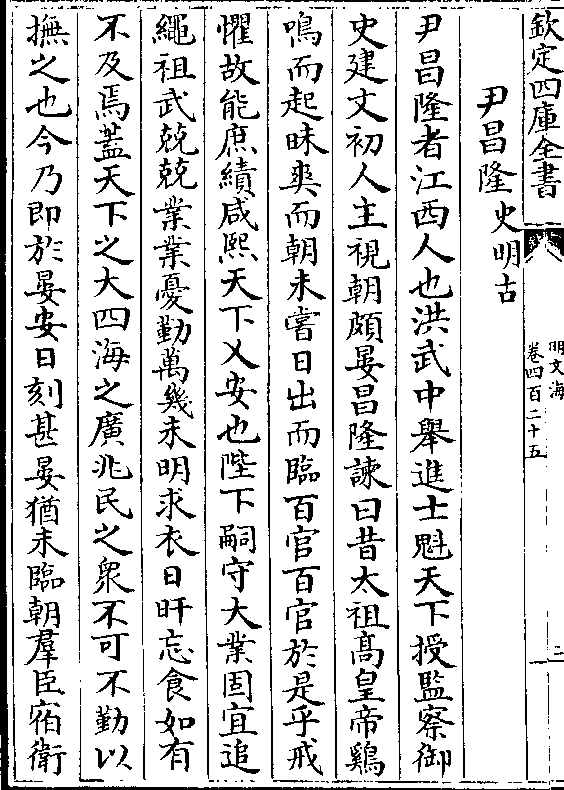 欽定四庫全書
明文海
卷四百二十五
二
尹昌隆 史明古
尹昌隆者江西人也洪武中舉進士魁天下授監察御
史建文初人主視朝頗晏昌隆諫曰昔太祖高皇帝鷄
鳴而起昧爽而朝未嘗日出而臨百官百官於是乎戒
懼故能庶績咸熙天下乂安也陛下嗣守大業固宜追
繩祖武兢兢業業憂勤萬幾未明求衣日旰忘食如有
不及焉蓋天下之大四海之廣兆民之衆不可不勤以
撫之也今乃即於晏安日刻甚晏猶未臨朝羣臣宿衛